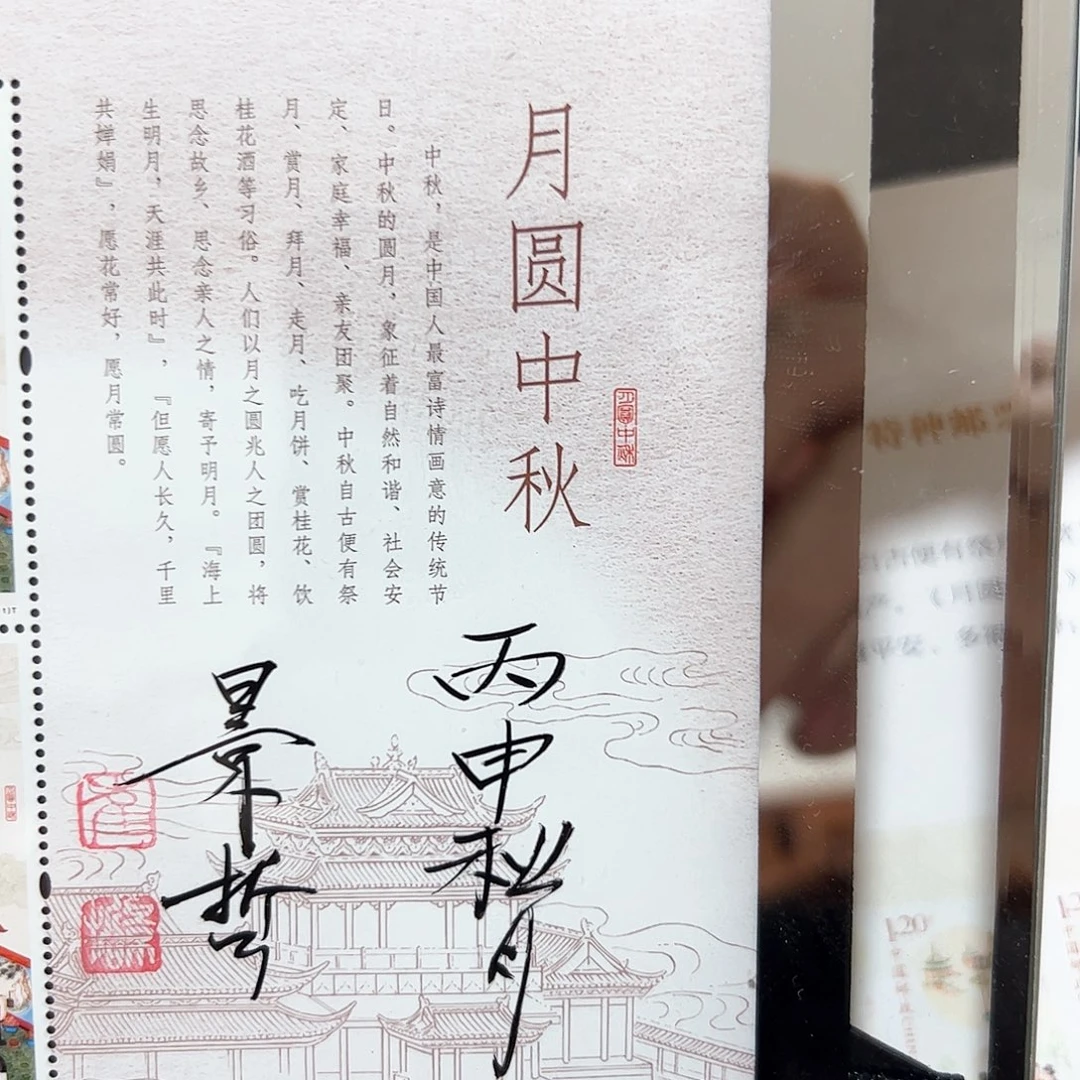 月圆中秋
月圆中秋
中秋，是中国人最富诗情画意的传统节
日。中秋的圆月，象征着自然和谐、社会安
定、家庭幸福、亲友团聚。中秋自古便有祭
月、赏月、拜月、走月、吃月饼、赏桂花、饮
桂花酒等习俗。人们以月之圆兆人之团圆，将
思念故乡、思念亲人之情，寄予明月。『海上
生明月，天涯共此时』，『但愿人长久，千里
共婵娟』，愿花常好，愿月常圆。
丙申秋月
景哲
特种邮
1.20